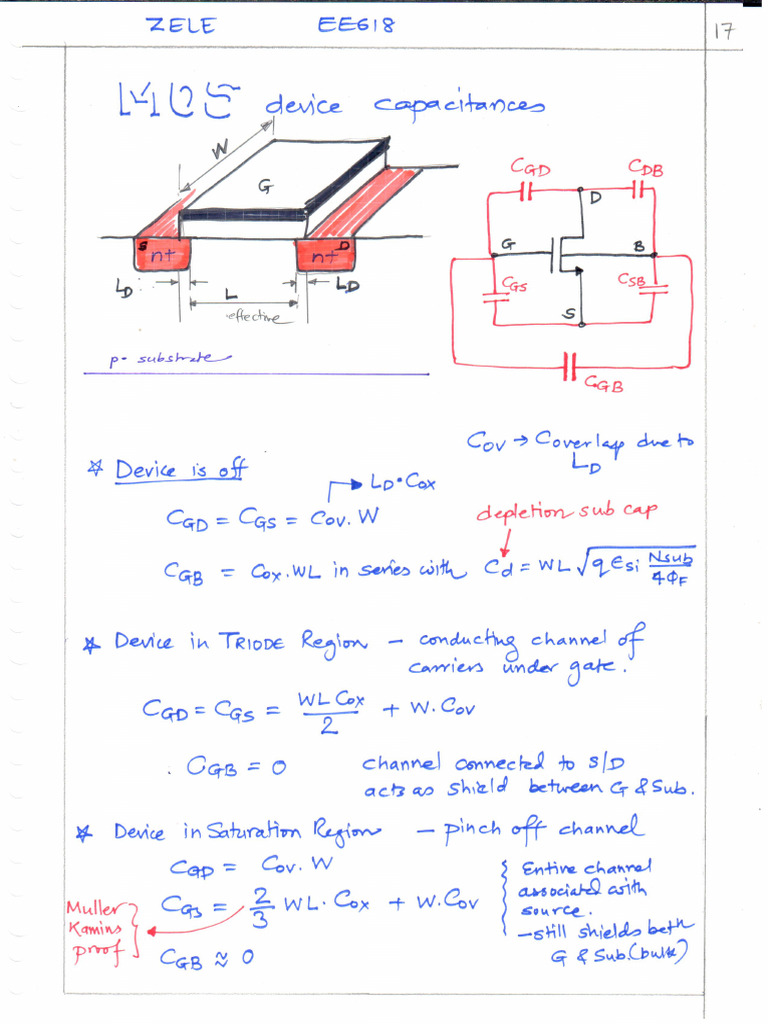 ZELE EE618 17
MOS device capacitances
W
G
S
n+
D
n+
LD
L
LD
effective
p- substrate
CGD
CDB
D
G
B
CGS
CSB
S
CGB
COV → Coverlap due to
LD
☆ Device is off
→ LD·Cox
CGD = CGS = Cov. W
depletion sub cap
CGB = Cox.WL in series with Cd = WL √(q εsi Nsub/4ΦF)
☆ Device in TRIODE Region - conducting channel of
carriers under gate.
CGD = CGS = WL Cox/2 + W. Cov
. CGB = 0 channel connected to S/D
acts as shield between G & Sub.
☆ Device in Saturation Region - pinch off channel
CGD = Cov. W
CGS = 2/3 WL. Cox + W. Cov
CGB ≈ 0
Entire channel
associated with
source.
- still shields beth
G & Sub.(bulk)
Muller
Kamins
proof